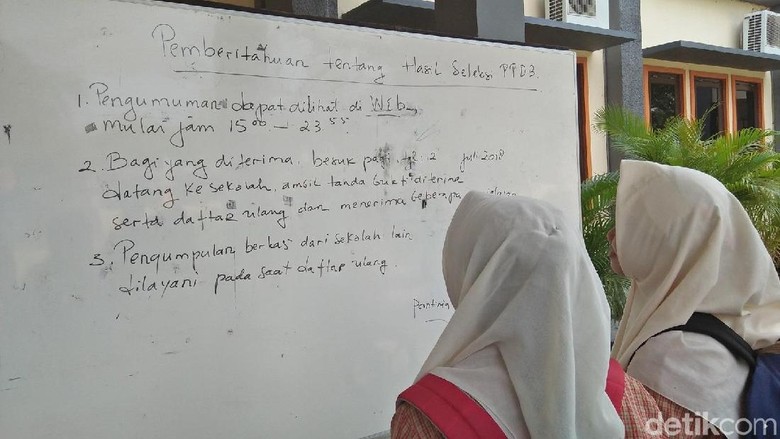 Pemberitahuan tentang Hasil Seleksi PPDB.
1. Pengumuman dapat dilihat di Web
mulai jam 15⁰⁰ – 23⁵⁵
2. Bagi yang diterima besuk pagi tgl 2 Juli 2018
datang ke sekolah, ambil tanda bukti diterima
serta daftar ulang dan menerima beberapa
3. Pengumpulan berkas dari sekolah lain
dilayani pada saat daftar ulang.
detikcom